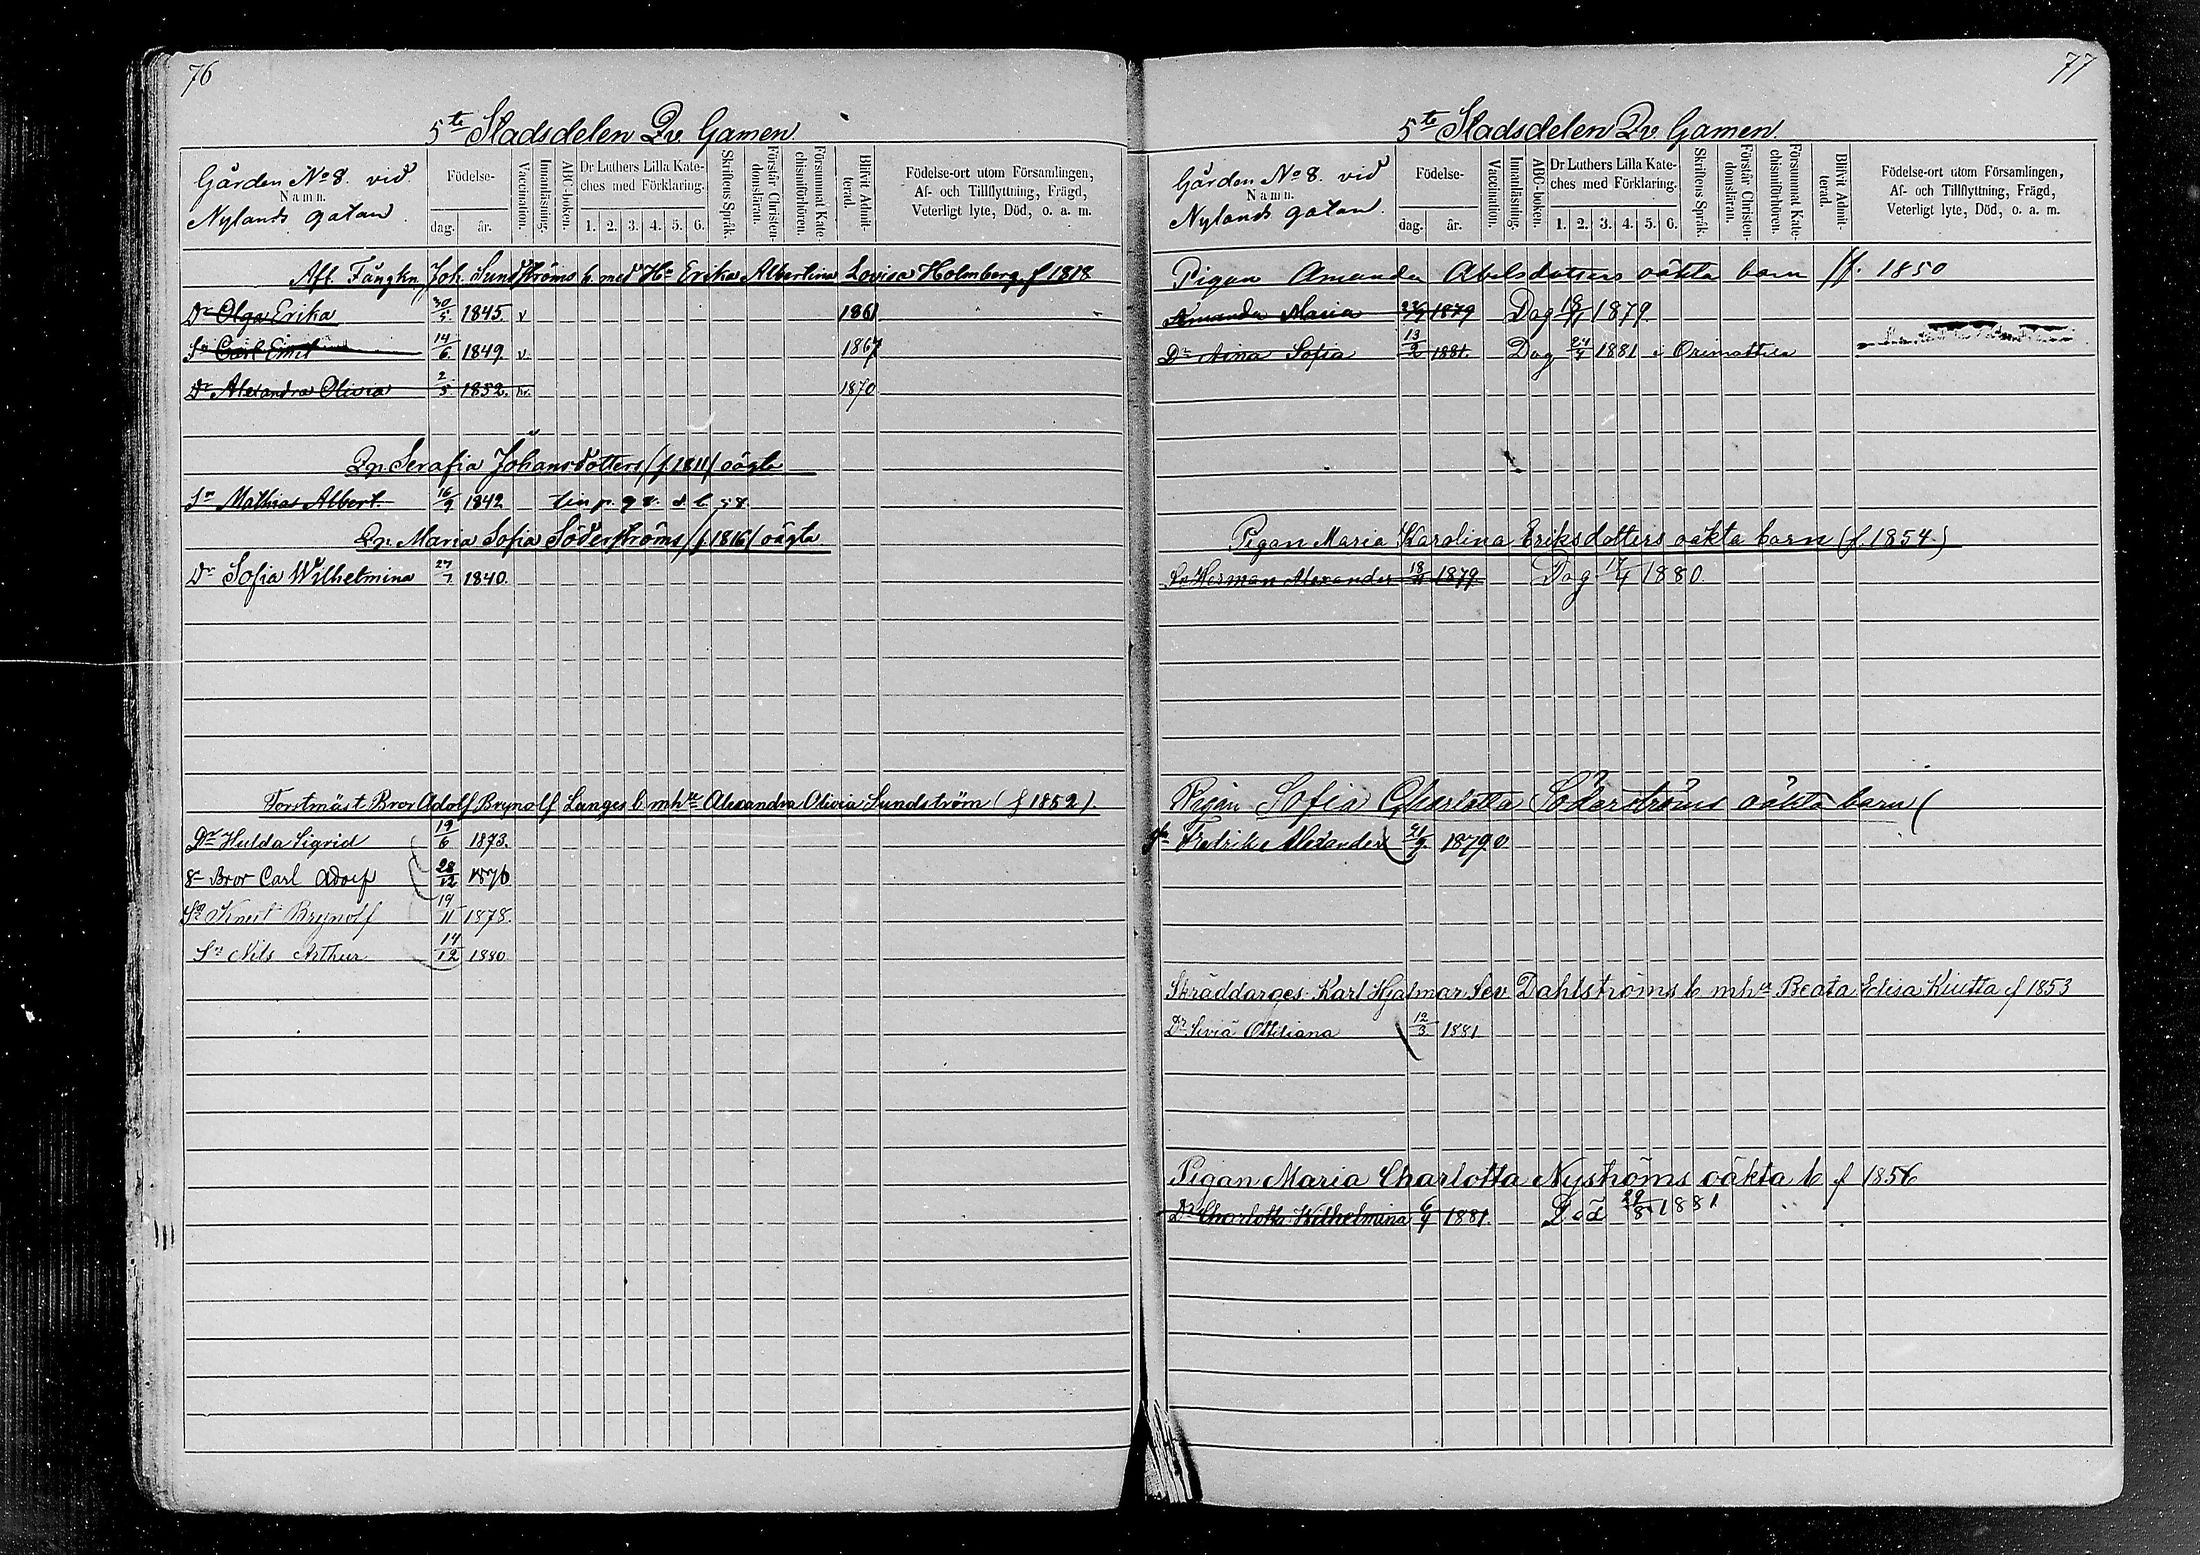 76
5te Stadsdelen Qv. Gamen.
Gården No 8. vid
Namn.
Nylands gatan.
Födelse-
dag. år.
Vaccination.
Innanläsning.
ABC-boken.
Dr Luthers Lilla Kate-
ches med Förklaring.
1. 2. 3. 4. 5. 6.
Skriftens Språk.
Förstår Christen-
domsläran.
Försummat Kate-
chismiförhören.
Blifvit Admit-
terad.
Födelse-ort utom Församlingen,
Af- och Tillflyttning, Frägd,
Veterligt lyte, Död, o. a. m.
Afl. Fångkn. Joh. Sundströms b. med Hu Erika Albertina Lovisa Holmberg f 1818
Dr Olga Erika 30/5. 1845. v 1861
Sn Carl Emil 14/6 1849 v 1867
Dr Alexandra Olivia 2/5. 1852. 1870
Qp. Serafia Johansdotters (f. 1811) oägta
Sn Mathias Albert. 16/9 1842
Qp. Maria Sofia Söderströms (f. 1816) oägta
Dr Sofia Wilhelmina 27/7 1840.
Forstmäst Bror Adolf Brynolf Langes b mhu Alexandra Olivia Sundström (f 1852).
Dr Hulda Sigrid 19/6 1873.
Sn Bror Carl Adolf 28/12 1876
Sn Knut Brynolf 19/11 1878.
Sn Nils Arthur 14/12 1880
77
5te Stadsdelen Qv. Gamen.
Gården No 8. vid
Namn.
Nylands gatan.
Födelse-
dag. år.
Vaccination.
Innanläsning.
ABC-boken.
Dr Luthers Lilla Kate-
ches med Förklaring.
1. 2. 3. 4. 5. 6.
Skriftens Språk.
Förstår Christen-
domsläran.
Försummat Kate-
chismiförhören.
Blifvit Admit-
terad.
Födelse-ort utom Församlingen,
Af- och Tillflyttning, Frägd,
Veterligt lyte, Död, o. a. m.
Pigan Amanda Abelsdotters oäkta barn f. 1850
Amanda Maria 1879 Dog 1879.
Dr Aina Sofia 13/2 1881. Dog 1881 i Orimattila
Pigan Maria Karolina Eriksdotters oäkta barn (f. 1854.)
Sn Herman Alexander 18/11 1879 Dog 17/4 1880.
Pigan Sofia Charlotta Söderströms oäkta barn (
Sn Fredrik Alexander 21/9. 1879. v
Skräddarges. Karl Hjalmar Sev. Dahlströms b mhu Beata Elisa Kiutta f 1853
Dr Siviä Ottiliana 12/3 1881.
Pigan Maria Charlotta Nyströms oäkta b f 1856
Dr Charlotta Wilhelmina 6/4 1881. Död 29/8 1881.